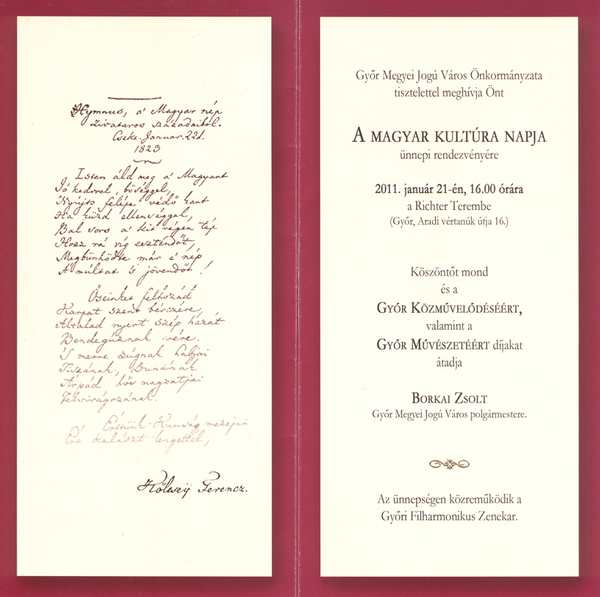 Hymnus, a' Magyar nép
zivataros századaiból.
Cseke, Januar. 22d.
1823
Isten áld meg a' Magyart
Jó kedvvel, bőséggel,
Nyújts feléje védő kart
Ha küzd ellenséggel,
Bal sors a' kit régen tép
Hozz rá víg esztendőt,
Megbűnhödte már e' nép
A' múltat 's jövendőt!
Őseinket felhozád
Kárpát szent bérczére,
Általad nyert szép hazát
Bendegúznak vére.
'S merre zúgnak habjai
Tiszának, Dunának
Árpád hős magzatjai
Felvirágozának.
Értünk Kunság mezején
Ért kalászt lengettél,
Kölcsey Ferencz.
Győr Megyei Jogú Város Önkormányzata
tisztelettel meghívja Önt
A MAGYAR KULTÚRA NAPJA
ünnepi rendezvényére
2011. január 21-én, 16.00 órára
a Richter Terembe
(Győr, Aradi vértanúk útja 16.)
Köszöntőt mond
és a
GYŐR KÖZMŰVELŐDÉSÉÉRT,
valamint a
GYŐR MŰVÉSZETÉÉRT díjakat
átadja
BORKAI ZSOLT
Győr Megyei Jogú Város polgármestere.
Az ünnepségen közreműködik a
Győri Filharmonikus Zenekar.